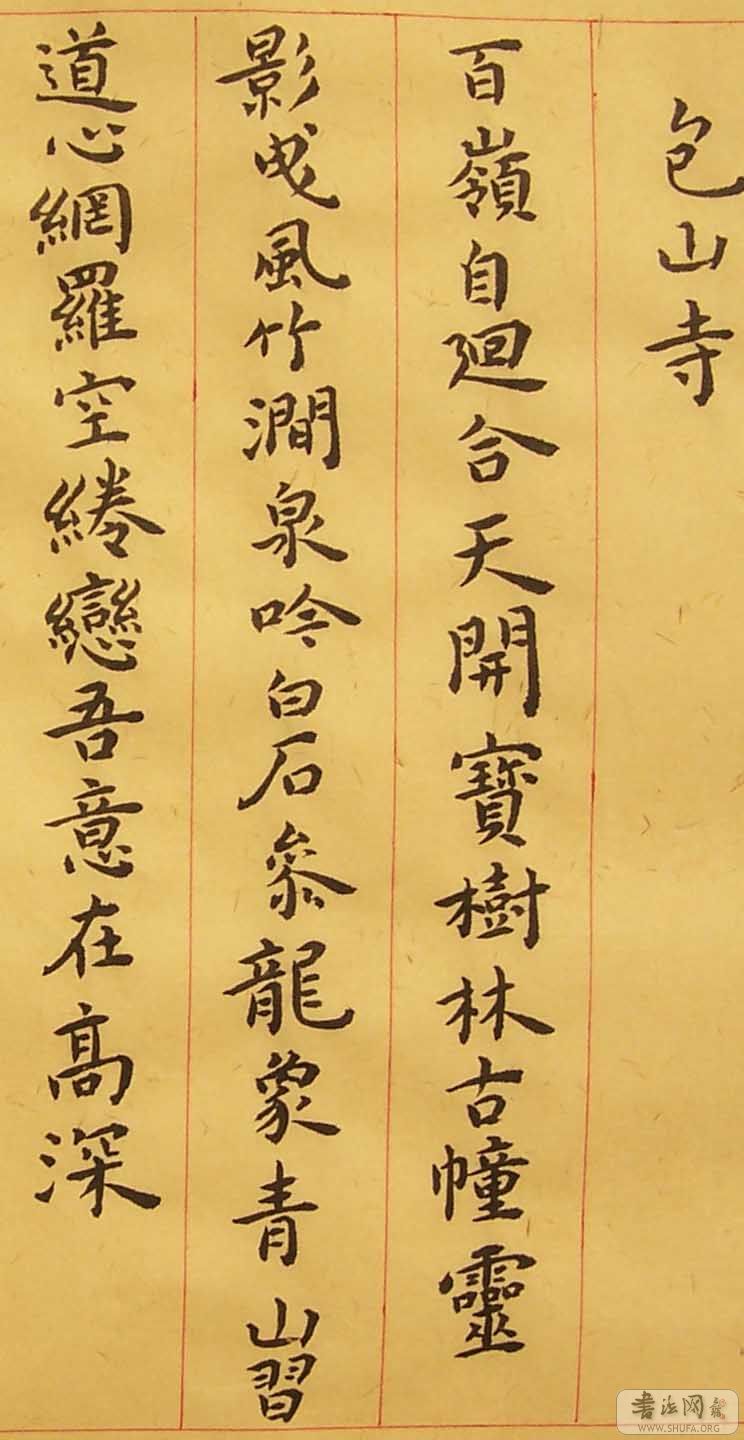 包山寺
百嶺自迴合天開寶樹林古幢靈
影曳風竹澗泉吟白石參龍象青山習
道心網羅空綣戀吾意在高深
書法网
WWW.SHUFA.ORG